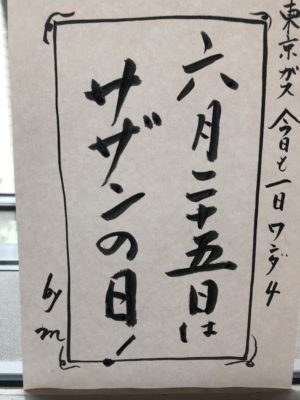 東京ガス 今日も一日ワンダ4
六月二十五日は
サザンの日!
by m